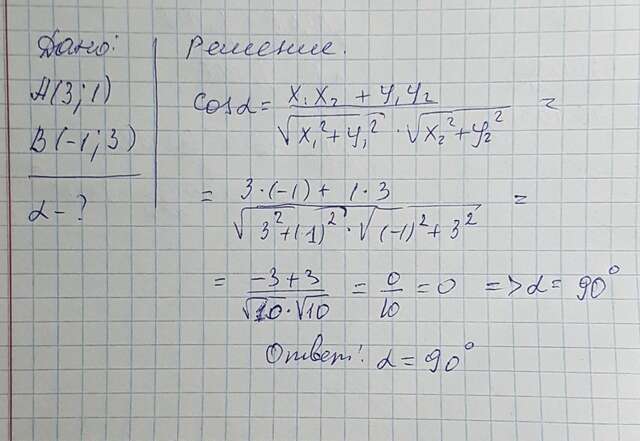 Дано:
A(3;1)
B(-1;3)
α-?
Решение.
cosα = (x₁x₂ + y₁y₂) / (√(x₁²+y₁²) · √(x₂²+y₂²)) =
= (3·(-1) + 1·3) / (√(3²+(1)²) · √((-1)²+3²)) =
= (-3+3) / (√10·√10) = 0/10 = 0 => α = 90°
Ответ: α = 90°